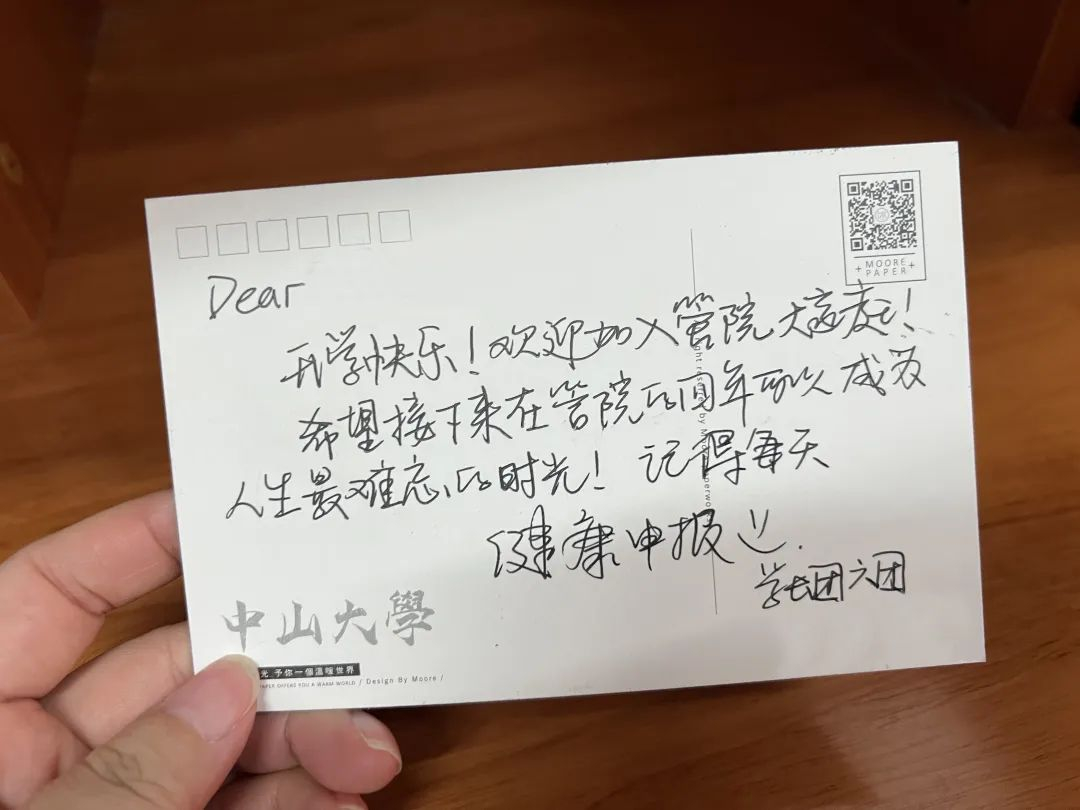 MOORE
PAPER
Dear
开学快乐！欢迎加入管院大家庭！
希望接下来在管院的四年可以成为
人生最难忘的时光！记得每天
健康申报
学长团六团
中山大學
光 予你一個溫暖世界
PAPER OFFERS YOU A WARM WORLD / Design By Moore /